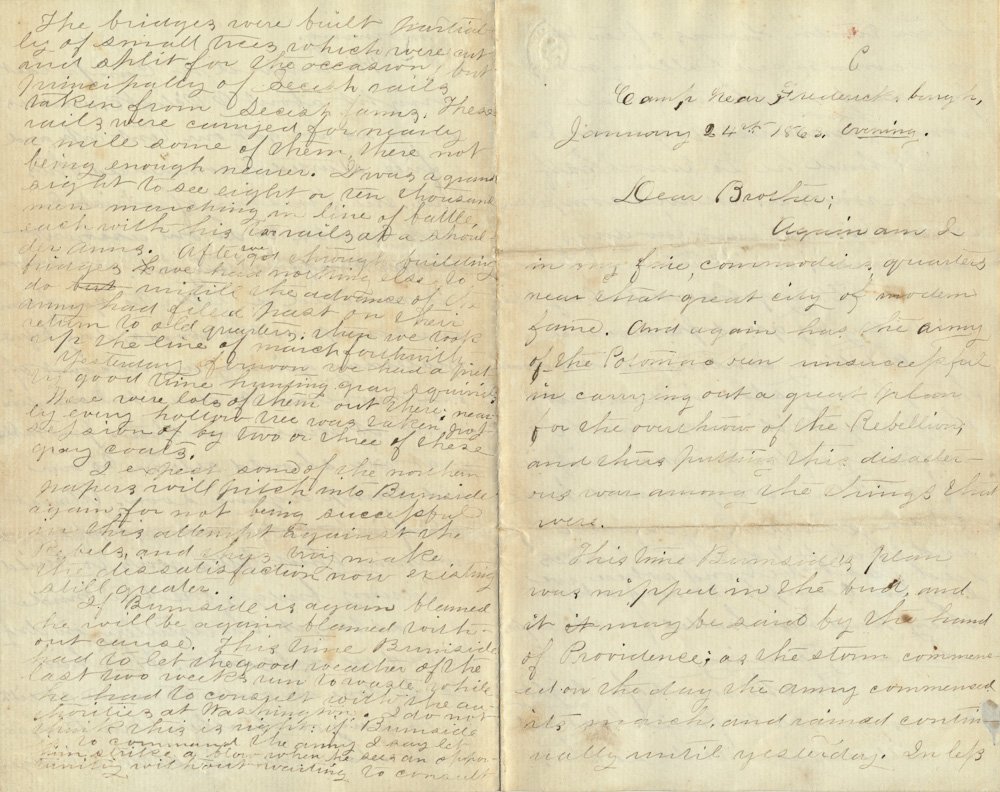 The bridges were built partial-
ly of small trees which were cut
and split for the occasion, but
principally of Secesh rails
taken from Secesh farms. These
rails were carried for nearly
a mile some of them, there not
being enough nearer. I was a grand
sight to see eight or ten thousand
men marching in line of battle
each with his rails at a shoul-
der arms. After we got through building
bridges we had nothing else to
do but untill the advance of
army had filed past on their
return to old quarters; then we took
up the line of march forthwith.
Yesterday afternoon we had a pret-
ty good time hunting gray squirrels.
There were lots of them out there; near-
ly every hollow tree was taken pos-
session of by two or three of these
gray coats.
I expect some of the northern
papers will pitch into Burnside
again for not being successful
in this attempt against the
Rebels, and thus try make
the dissatisfaction now existing
still greater.
If Burnside is again blamed
he will be again blamed with-
out cause. This time Burnside
had to let the good weather of the
last two weeks run to waste while
he had to consult with the au-
thorities at Washington. I do not
think this is right; if Burnside
is to command the army I say let
him strike a blow when he sees an oppor-
tunity without waiting to consult
C
Camp Near Fredericksburgh,
January 24th 1863. Evening.
Dear Brother;
Again am I
in my fine, commodi s, quarters
near that great city of modern
fame. And again has the army
of the Potomac run unsuccessful
in carrying out a great plan
for the overthrow of the Rebellion;
and thus putting this disaster-
ous war among the things that
were.
This time Burnsides plan
was nipped in the bud, and
it it may be said by the hand
of Providence; as the storm commenc-
ed on the day the army commenced
its march, and rained contin-
ually until yesterday. In less